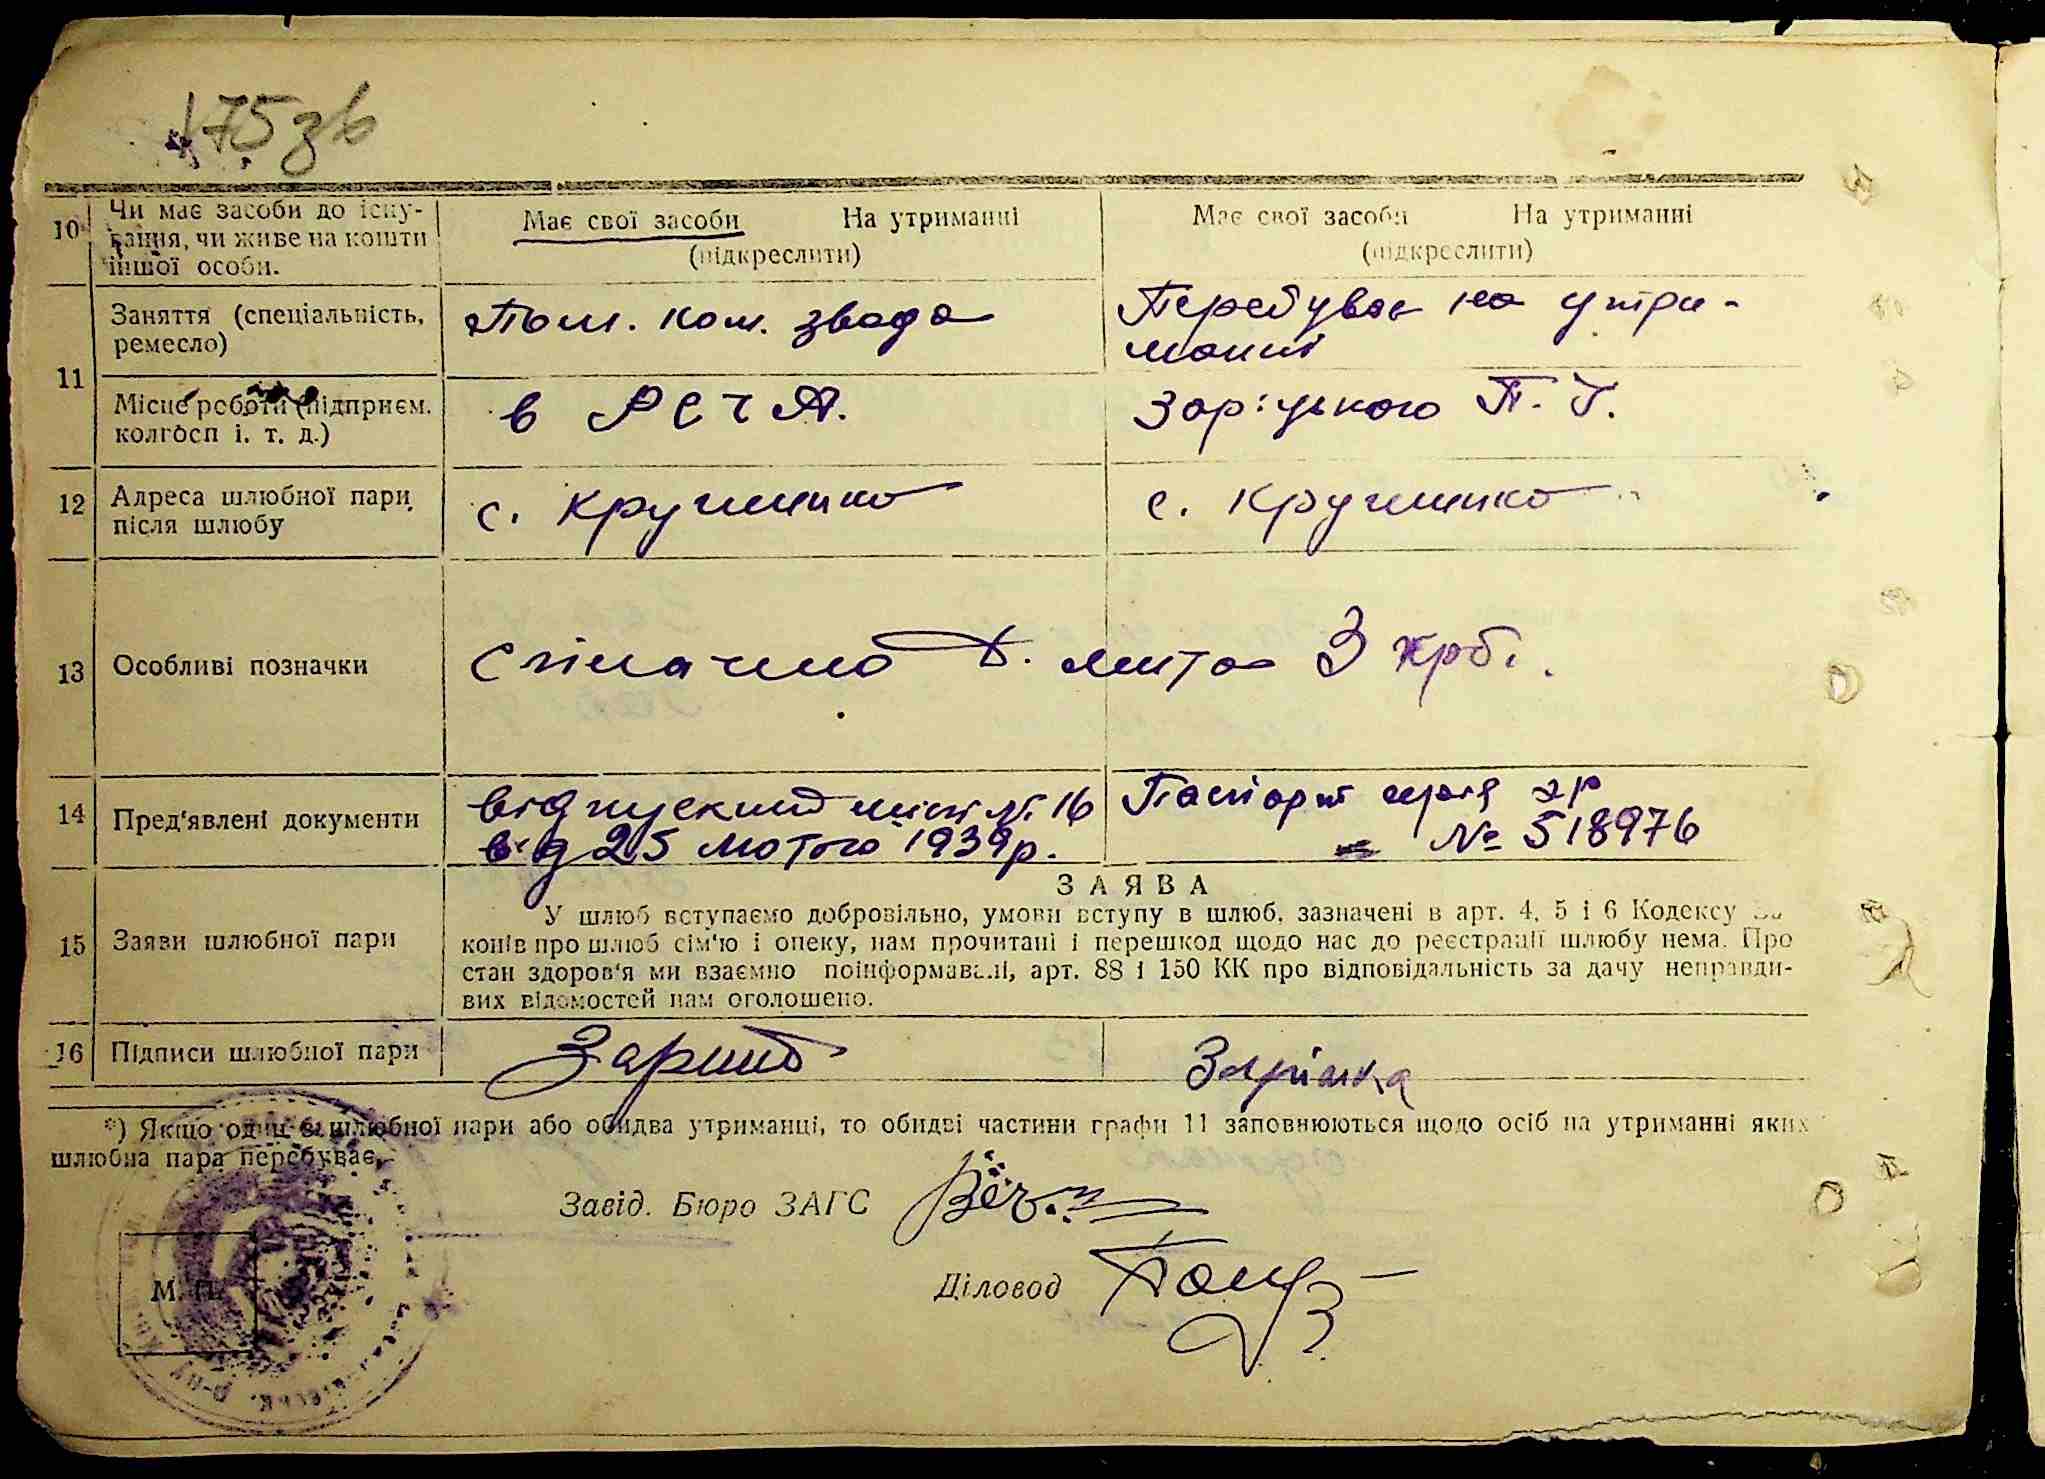 175 зв
10 Чи має засоби до існу-
вання, чи живе на кошти
іншої особи.
Має свої засоби На утриманні
(підкреслити)
Має свої засоби На утриманні
(підкреслити)
11
Заняття (спеціальність,
ремесло)
Пом. ком. звода
Перебуває на утри-
манні
Місце роботи (підприєм.
колгосп і. т. д.)
в РСЧА.
Заріцького П. І.
12 Адреса шлюбної пари
після шлюбу
с.
с.
13 Особливі позначки
Спілачно Д. мита 3 крб.
14 Пред'явлені документи
відпускний лист № 16
від 25 лютого 1939р.
Паспорт серія
№ 518976
15 Заяви шлюбної пари
ЗАЯВА
У шлюб вступаємо добровільно, умови вступу в шлюб, зазначені в арт. 4, 5 і 6 Кодексу За-
конів про шлюб сім'ю і опеку, нам прочитані і перешкод щодо нас до реєстрації шлюбу нема. Про
стан здоров'я ми взаємно поінформавалі, арт. 88 і 150 КК про відповідальність за дачу неправди-
вих відомостей нам оголошено.
16 Підписи шлюбної пари
*) Якщо один з шлюбної пари або обидва утриманці, то обидві частини графи 11 заповнюються щодо осіб на утриманні яких
шлюбна пара перебуває.
Завід. Бюро ЗАГС
Діловод
М. П.